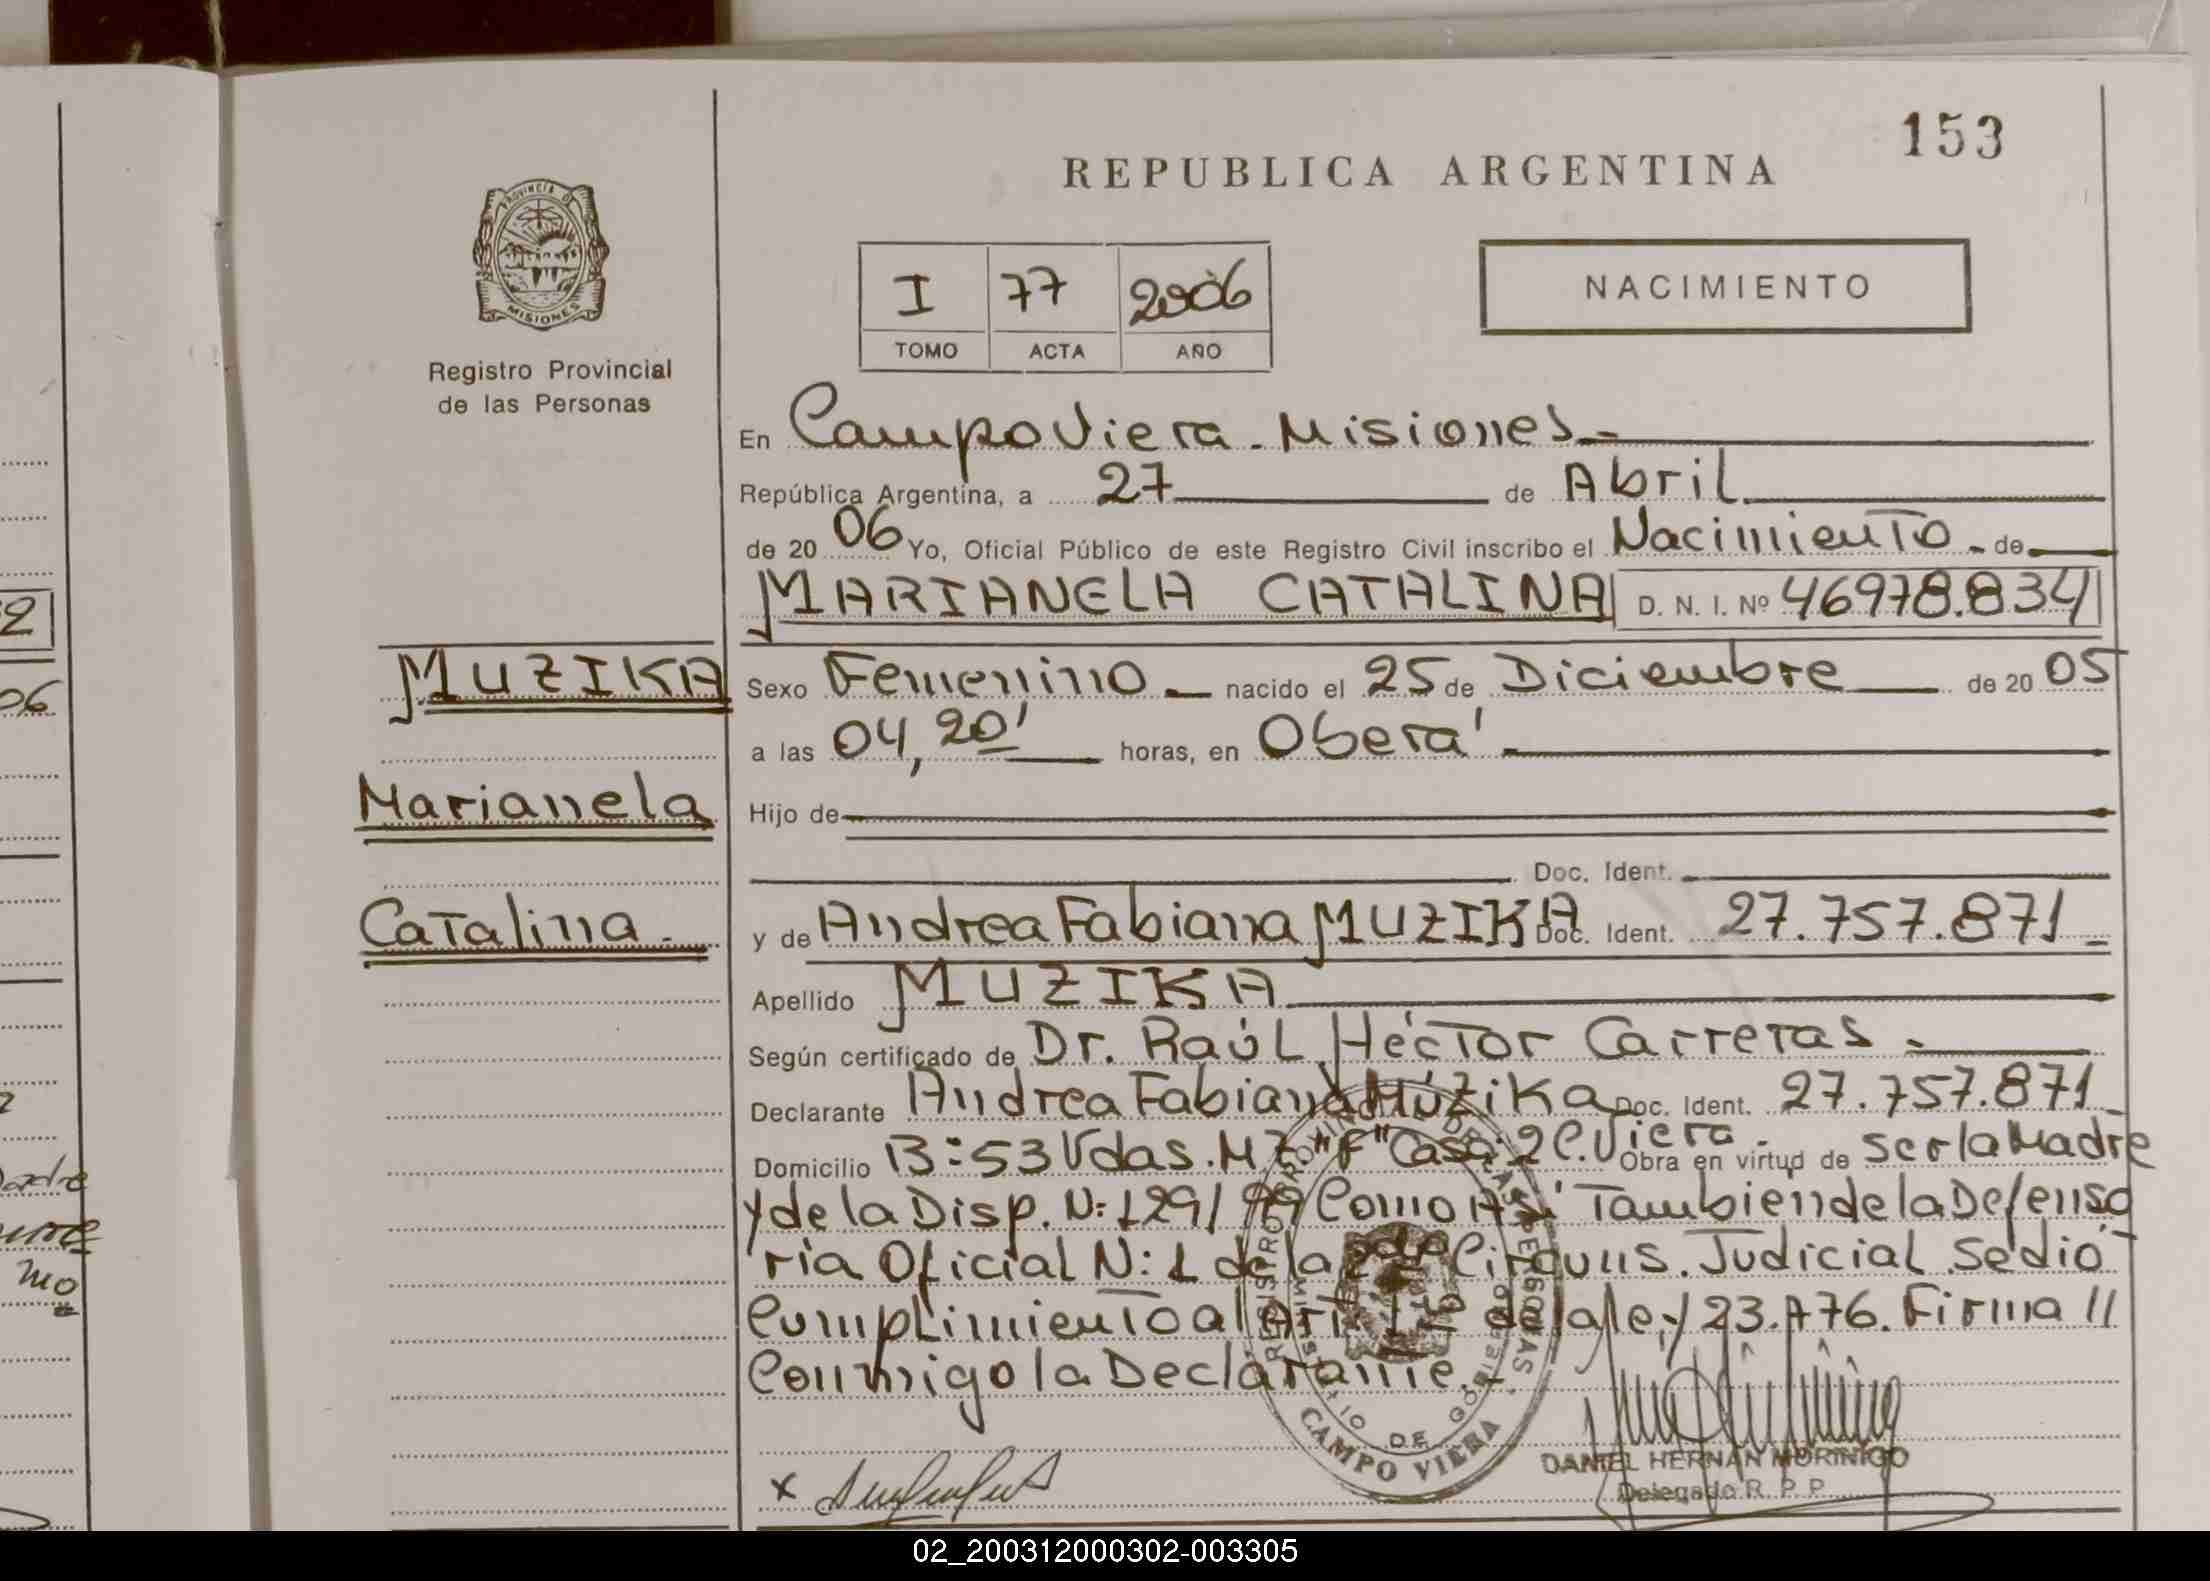 153
REPUBLICA ARGENTINA
PROVINCIA DE
MISIONES
Registro Provincial
de las Personas
I 77 2006
TOMO ACTA AÑO
NACIMIENTO
En Campo Viera - Misiones -
República Argentina, a 27 de Abril
de 20 06 Yo, Oficial Público de este Registro Civil inscribo el Nacimiento - de
MARIANELA CATALINA D. N. I. Nº 46978.834
MUZIKA
Sexo Femenino nacido el 25 de Diciembre de 20 05
a las 04,20' horas, en Oberá
Marianela
Hijo de
Doc. Ident.
Catalina -
y de Andrea Fabiana MUZIKA Doc. Ident. 27.757.871
Apellido MUZIKA
Según certificado de Dr. Raúl Héctor Carreras -
Declarante Andrea Fabiana Múzika Doc. Ident. 27.757.871
Domicilio B: 53 Vdas. Mz. "F" Casa: 2 C. Viera - Obra en virtud de ser la Madre
y de la Disp. N: 129/99 Como Así Tambien de la Defenso
ria Oficial N: 1 de la 2da Circuns. Judicial. Se dió
Cumplimiento al Art. de la ley 23.776. Firma //
Conmigo la Declarante. -
REGISTRO PROVINCIAL DE LAS PERSONAS
MINISTERIO DE GOBIERNO
CAMPO VIERA
X
DANIEL HERNAN MORINIGO
Delegado R. P. P.
02_200312000302-003305